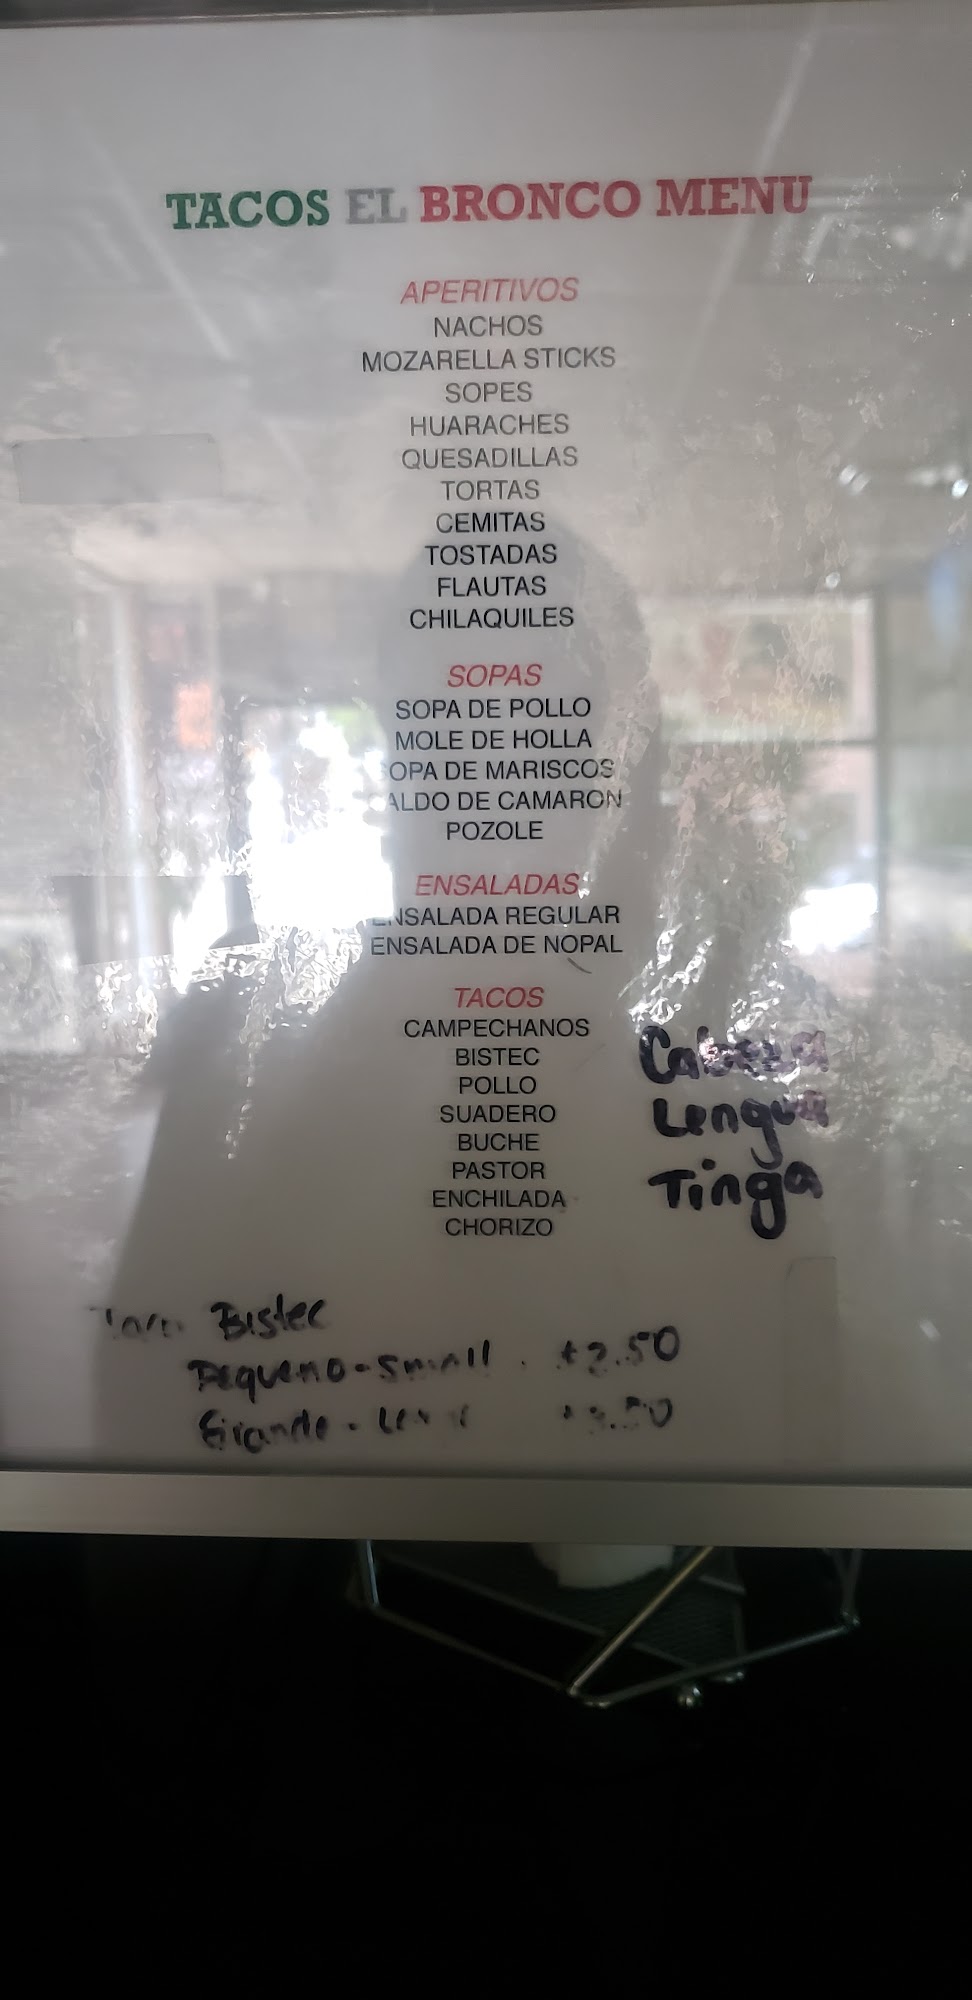 TACOS EL BRONCO MENU
APERITIVOS
NACHOS
MOZARELLA STICKS
SOPES
HUARACHES
QUESADILLAS
TORTAS
CEMITAS
TOSTADAS
FLAUTAS
CHILAQUILES
SOPAS
SOPA DE POLLO
MOLE DE HOLLA
SOPA DE MARISCOS
CALDO DE CAMARON
POZOLE
ENSALADAS
ENSALADA REGULAR
ENSALADA DE NOPAL
TACOS
CAMPECHANOS
BISTEC
POLLO
SUADERO
BUCHE
PASTOR
ENCHILADA
CHORIZO
Lengua
Tinga
Bistec
Pequeno - small
2.50
Grande -